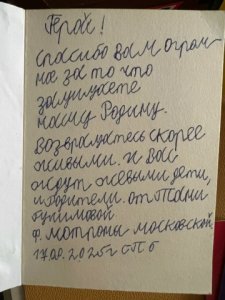 Герой!
Спасибо Вам огром
ное за то что
защищаете
нашу Родину.
Возвращайтесь скорее
живыми. и Вас
ждут живыми дети,
и родители. от Тани
ф. Матроны московской
17.09.2025г СПб